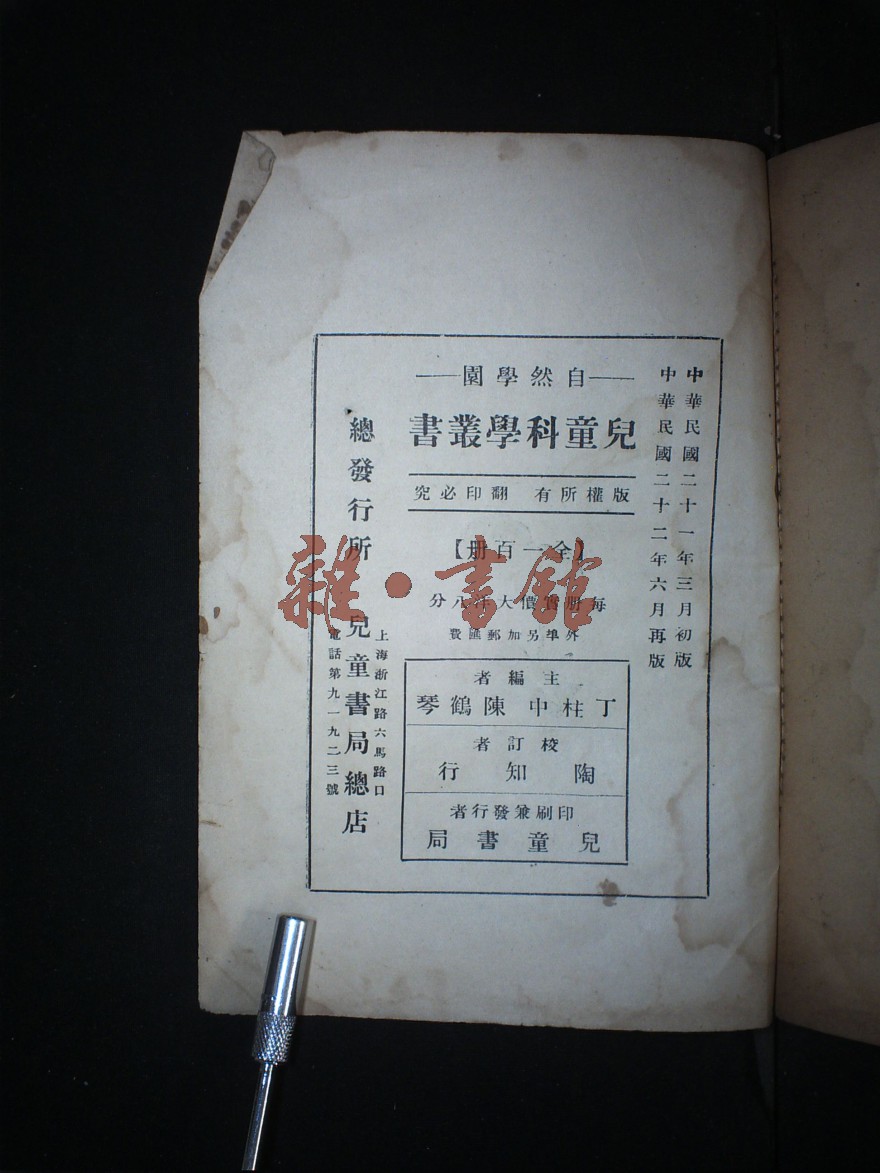 中華民國二十一年三月初版
中華民國二十二年六月再版
——自然學園——
兒童科學叢書
版權所有 翻印必究
【全一百册】
每册實價大洋八分
外埠另加郵匯費
主編者
丁柱中 陳鶴琴
校訂者
陶知行
印刷兼發行者
兒童書局
上海浙江路六馬路口
總發行所 兒童書局總店
電話第九一九二三號
雜·書館